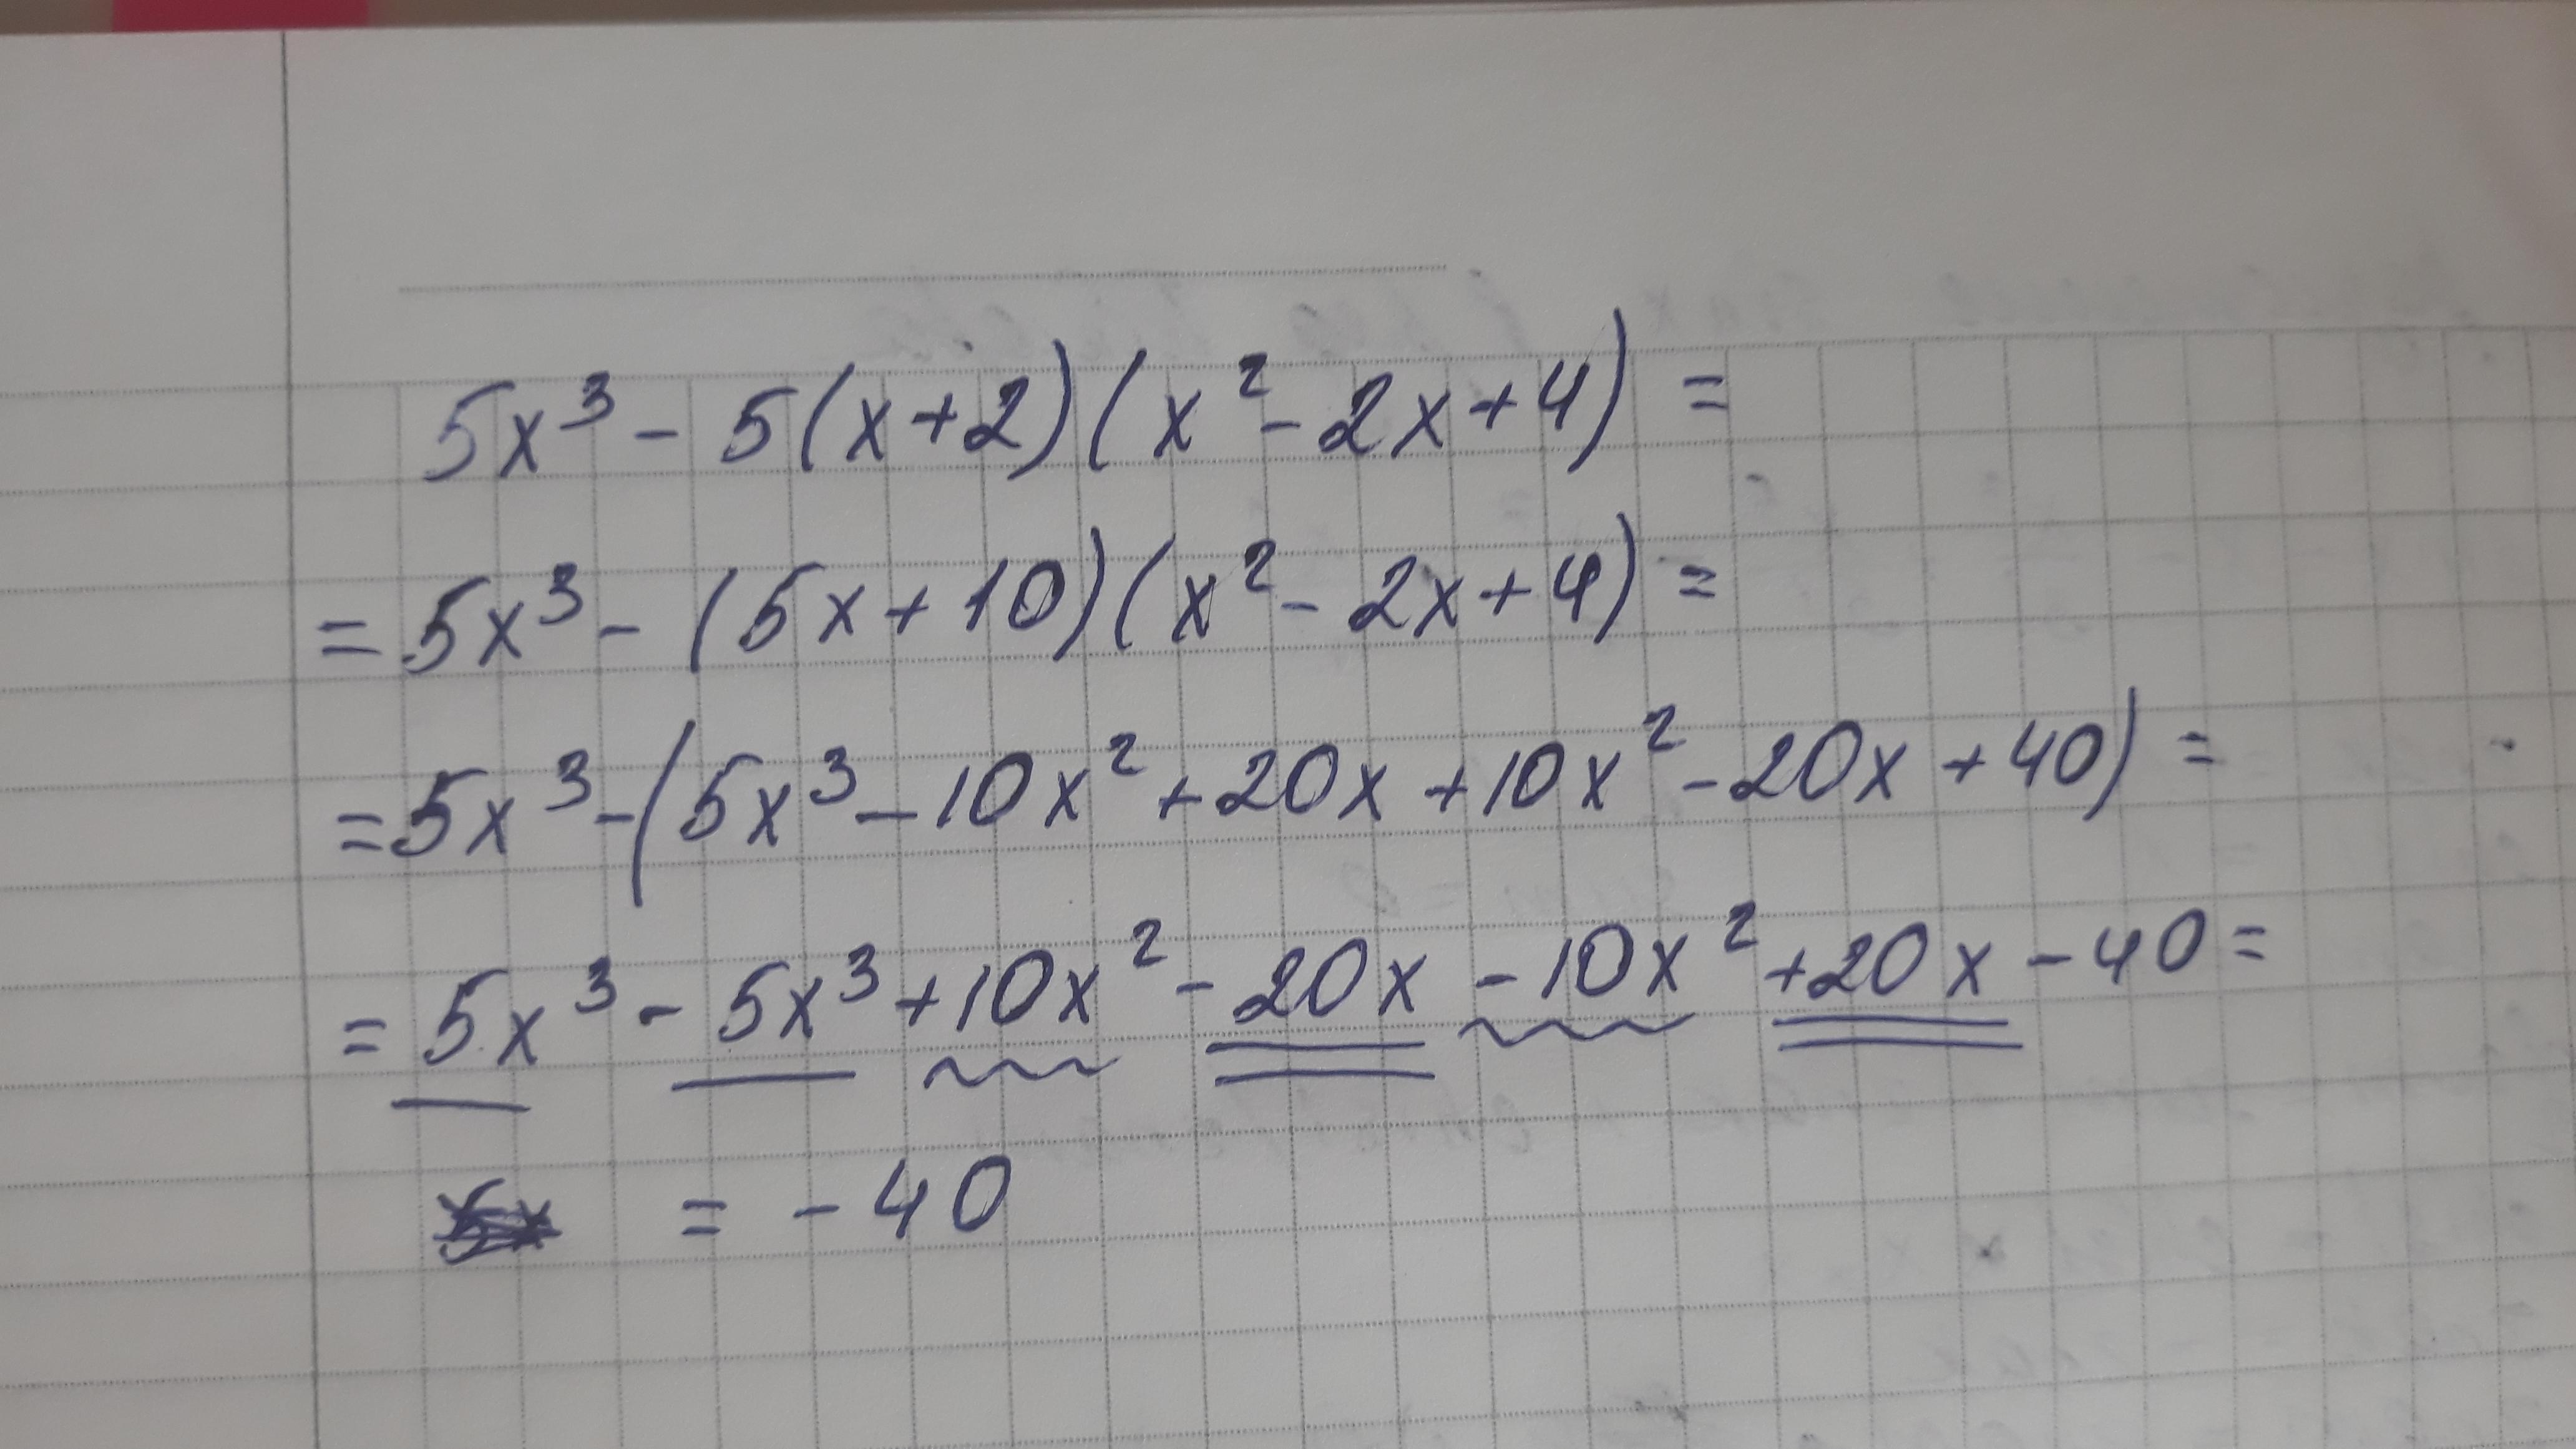 5x³ - 5(x+2)(x² - 2x+4) =
= 5x³ - (5x+10)(x² - 2x+4) =
= 5x³ - (5x³ - 10x² + 20x + 10x² - 20x + 40) =
= 5x³ - 5x³ + 10x² - 20x - 10x² + 20x - 40 =
= - 40